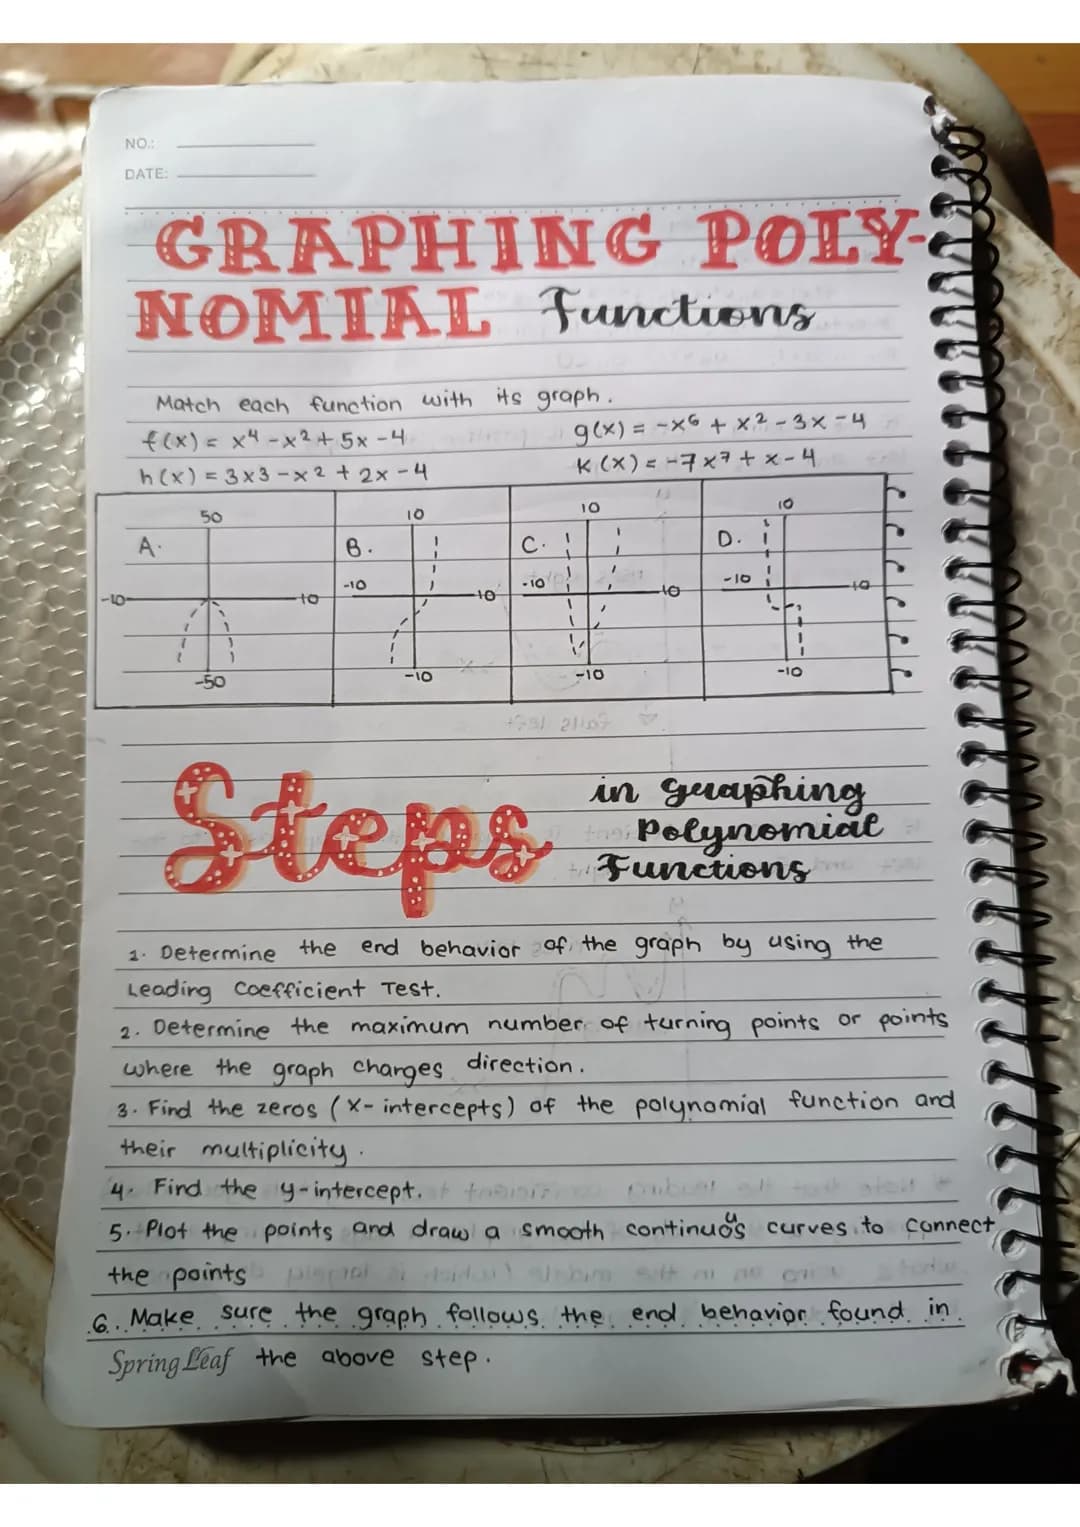 NO.:
DATE:
GRAPHING POLY-
NOMIAL Functions
Match each function with its graph.
f(x) = x⁴ - x² + 5x - 4
g(x) = -x⁶ + x² - 3x - 4
h(x) = 3x3 - x² + 2x - 4
K(x) = -7x⁷ + x - 4
A. 50 -10 10 -50
B. 10 -10 10 -10
C. 10 -10 10 -10
D. 10 -10 10 -10
Steps
in graphing
Polynomial
Functions
1. Determine the end behavior of the graph by using the
Leading Coefficient Test.
2. Determine the maximum number of turning points or points
where the graph changes direction.
3. Find the zeros (x-intercepts) of the polynomial function and
their multiplicity.
4. Find the y-intercept.
5. Plot the points and draw a smooth continuous curves to connect
the points
6. Make sure the graph follows the end behavior found in
SpringLeaf the above step.